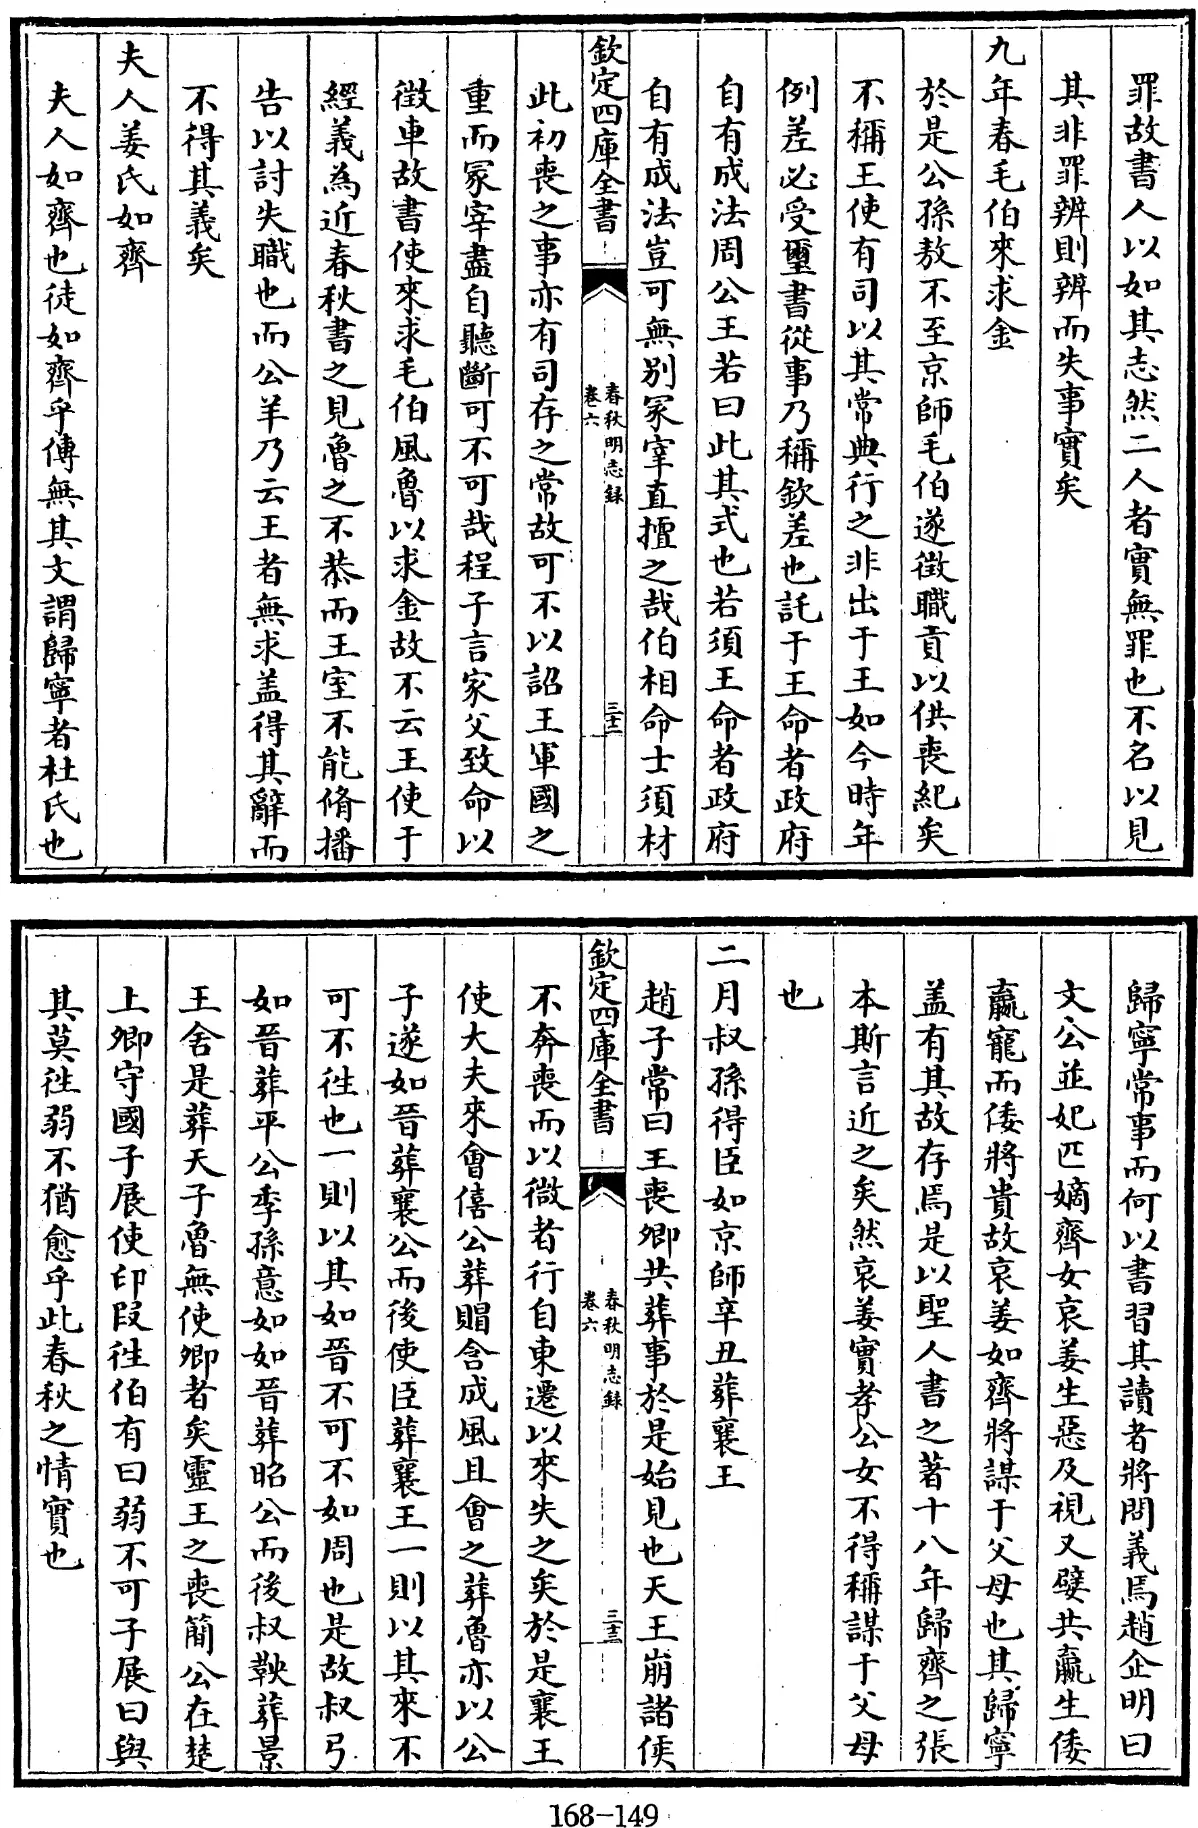 罪故書人以如其志然二人者實無罪也不名以見
其非罪辨則辨而失事實矣
九年春毛伯來求金
於是公孫敖不至京師毛伯遂徵職貢以供喪紀矣
不稱王使有司以其常典行之非出于王如今時年
例差必受璽書從事乃稱欽差也託于王命者政府
自有成法周公王若曰此其式也若須王命者政府
自有成法豈可無别冢宰直擅之哉伯相命士須材
欽定四庫全書
春秋明志録
卷六
三十二
此初喪之事亦有司存之常故可不以詔王軍國之
重而冢宰盡自聽斷可不可哉程子言家父致命以
徵車故書使來求毛伯風魯以求金故不云王使于
經義為近春秋書之見魯之不恭而王室不能脩播
告以討失職也而公羊乃云王者無求盖得其辭而
不得其義矣
夫人姜氏如齊
夫人如齊也徒如齊乎傳無其文謂歸寧者杜氏也
歸寧常事而何以書習其讀者將問義焉趙企明曰
文公並妃匹嫡齊女哀姜生惡及視又嬖共嬴生倭
嬴寵而倭將貴故哀姜如齊將謀于父母也其歸寧
盖有其故存焉是以聖人書之著十八年歸齊之張
本斯言近之矣然哀姜實孝公女不得稱謀于父母
也
二月叔孫得臣如京師辛丑葬襄王
趙子常曰王喪卿共葬事於是始見也天王崩諸侯
欽定四庫全書
春秋明志録
卷六
三十三
不奔喪而以微者行自東遷以來失之矣於是襄王
使大夫來會僖公葬賵含成風且會之葬魯亦以公
子遂如晉葬襄公而後使臣葬襄王一則以其來不
可不徃也一則以其如晉不可不如周也是故叔弓
如晉葬平公季孫意如如晉葬昭公而後叔鞅葬景
王舍是葬天子魯無使卿者矣靈王之喪簡公在楚
上卿守國子展使印段徃伯有曰弱不可子展曰與
其莫徃弱不猶愈乎此春秋之情實也
168-149